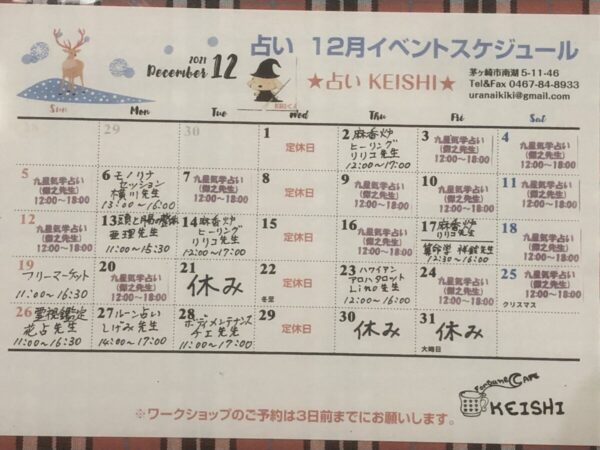 2021
December 12
占い 12月イベントスケジュール
★占い KEISHI★
茅ヶ崎市南湖5-11-46
Tel&Fax 0467-84-8933
uranaikiki@gmail.com
Sun Mon Tue Wed Thu Fri Sat
28 29 30
1 定休日
2 麻香炉
ヒーリング
リリコ先生
12:00~17:00
3 九星気学占い
12:00~18:00
4 九星気学占い
12:00~18:00
5 九星気学占い
12:00~18:00
6 モノリナ
セッション
横川先生
13:00~16:00
7 九星気学占い
12:00~18:00
8 定休日
9 九星気学占い
12:00~18:00
10 九星気学占い
12:00~18:00
11 九星気学占い
12:00~18:00
12 九星気学占い
12:00~18:00
13
亜理先生
11:00~15:30
14 麻香炉
ヒーリング
リリコ先生
12:00~17:00
15 定休日
16 九星気学占い
12:00~18:00
17 麻香炉
リリコ先生
算命学 祥紘先生
12:30~16:00
18 九星気学占い
12:00~18:00
19
フリーマーケット
11:00~16:30
20 九星気学占い
12:00~18:00
21
休み
22 定休日
冬至
23 ハワイアン
アロハタロット
Lino先生
12:00~16:00
24 九星気学占い
12:00~18:00
25 九星気学占い
12:00~18:00
クリスマス
26 霊視鑑定
花占先生
11:00~16:30
27 ルーン占い
しげみ先生
14:00~17:00
28
ボディメンテナンス
チエ先生
11:00~17:00
29 定休日
30 休み
31 休み
大晦日
Fortune CAFE
KEISHI
※ワークショップのご予約は3日前までにお願いします。